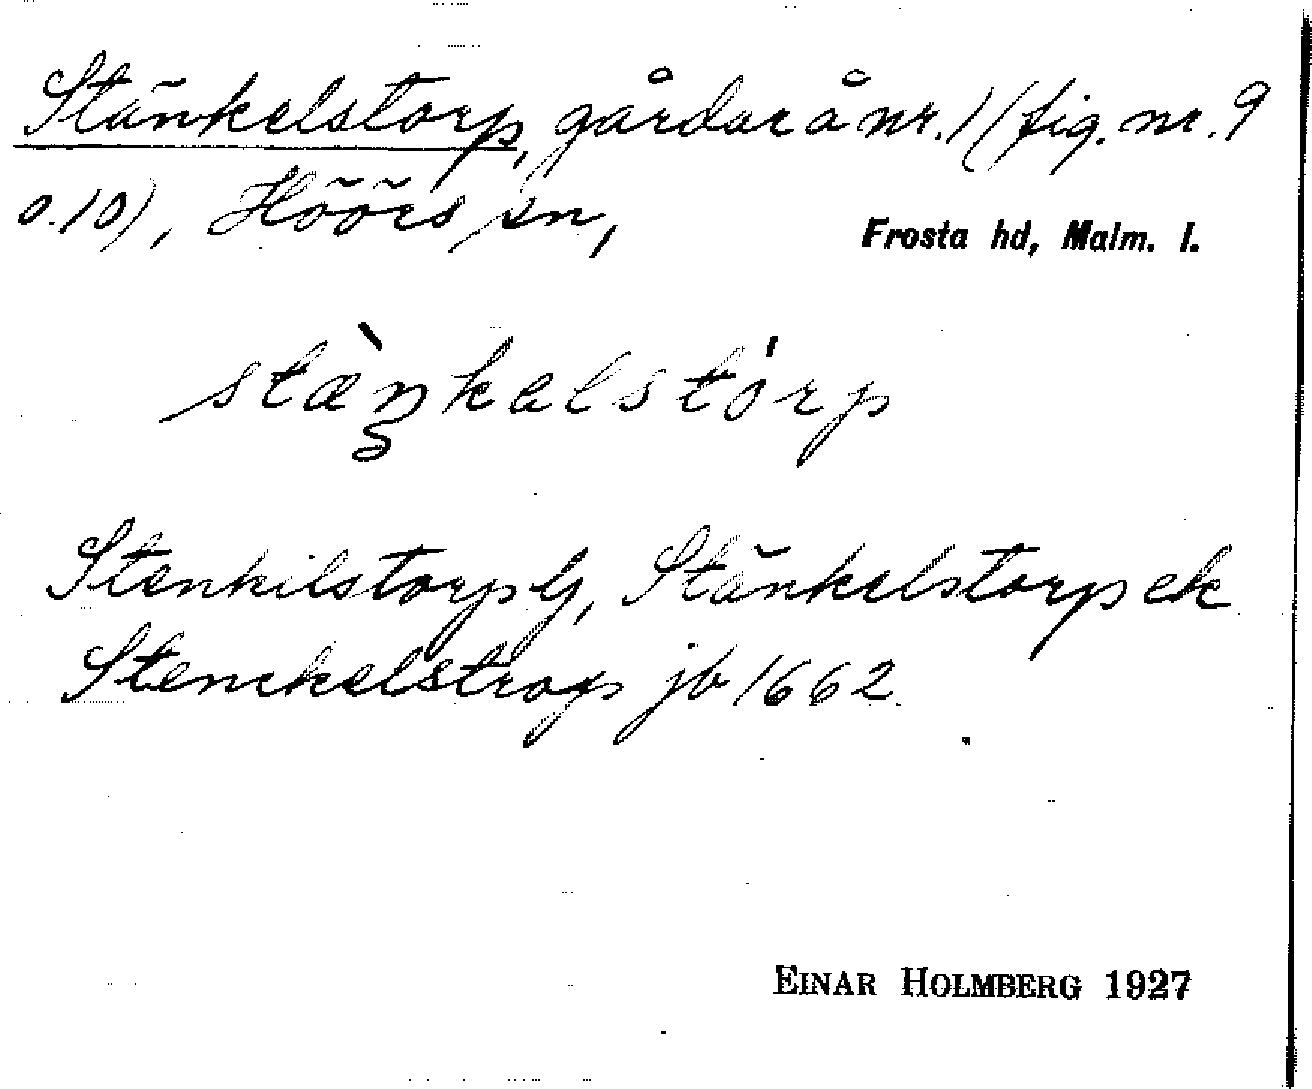 Stänkelstorp, gårdar å nr. 1 (fig. nr. 9
o. 10), Höörs sn,
Frosta hd, Malm. l.
stæ̀ŋkelstórp
Stenkilstorp G, Stänkelstorp ek
Stenckelstrop jb 1662.
EINAR HOLMBERG 1927